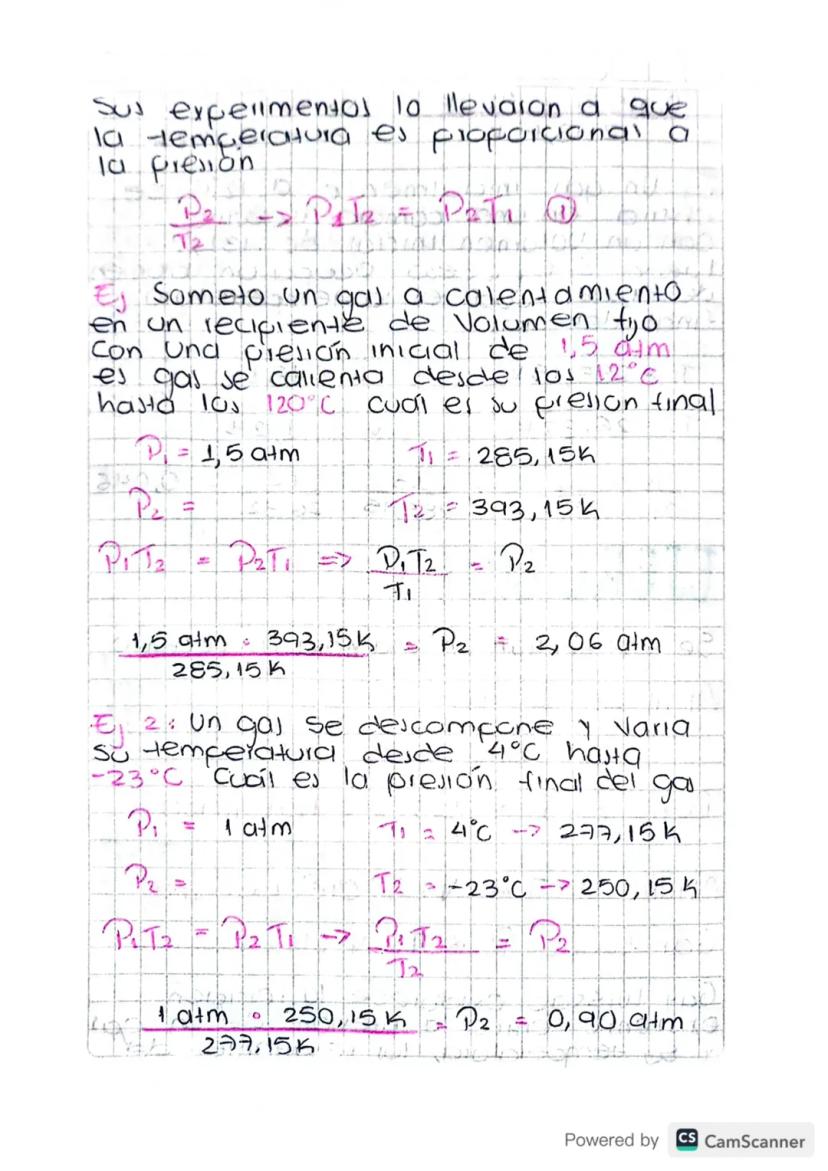 Sus experimentos lo llevaron a que
la temperatura es proporcional a
la presión
P2/T2 -> P1T2 = P2T1 ①
Ej Someto un gas a calentamiento
en un recipiente de volumen fijo
Con una presión inicial de 1,5 atm
es gas se calienta desde los 12°C
hasta los 120°C cuál es su presion final
P1 = 1,5 atm T1 = 285,15K
P2 = T2 = 393,15K
P1T2 = P2T1 => P1T2/T1 = P2
1,5 atm · 393,15K / 285,15K = P2 = 2,06 atm
Ej 2: Un gas se descompone y varia
su temperatura desde 4°C hasta
-23°C Cuál es la presión final del gas
P1 = 1 atm T1 = 4°C -> 277,15K
P2 = T2 = -23°C -> 250,15K
P1T2 = P2T1 -> P1T2/T2 = P2
1 atm · 250,15K / 277,15K = P2 = 0,90 atm
Powered by CS CamScanner